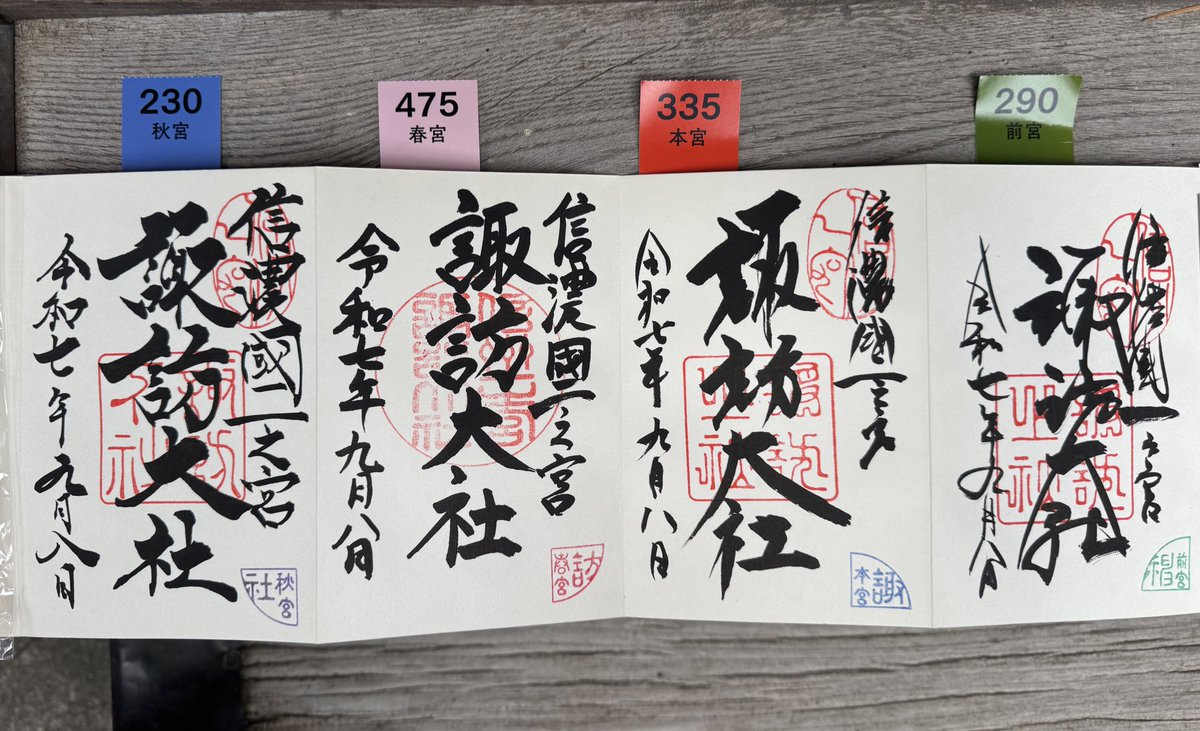 230
秋宮
475
春宮
335
本宮
290
前宮
信濃國一之宮
諏訪大社
令和七年九月八日
秋宮
社
信濃國一之宮
諏訪大社
令和七年九月八日
訪
春宮
信濃國一之宮
諏訪大社
令和七年九月八日
諏
本宮
信濃國一之宮
諏訪大社
令和七年九月八日
前宮